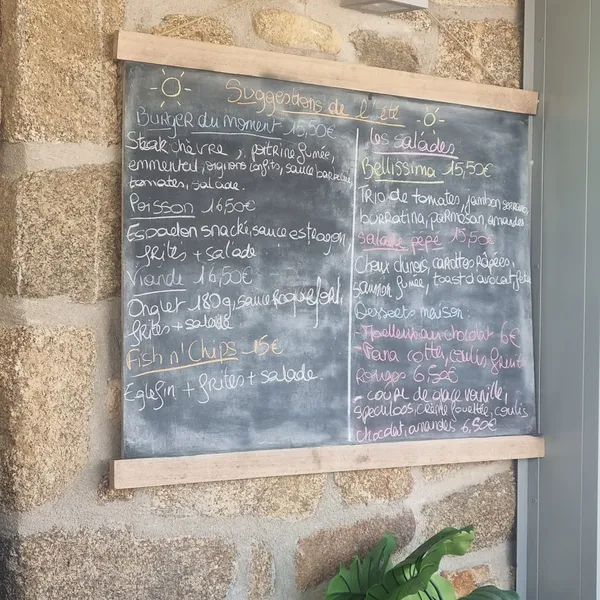 Suggestions de l'été
Burger du moment 15,50€
Steak chèvre, poitrine fumée,
emmental, oignons confits, sauce barbecue
tomates, salade.
Poisson 16,50€
Espadon snacké, sauce estragon,
frites + salade
Viande 16,50€
Onglet 180g, sauce roquefort,
frites + salade
Fish n' Chips 15€
Eglefin + frites + salade.
les salades
Bellissima 15,50€
Trio de tomates, jambon serrano,
burratina, parmesan, amandes
Salade pepé 15,50€
Choux chinois, carottes râpées,
saumon fumé, toast d'avocat, feta
Desserts maison:
- Moelleux au chocolat 6€
- Pana cotta, coulis fruit
Rouges 6,50€
- coupe de glace vanille,
spéculoos, crème fouettée, coulis
chocolat, amandes 6,50€